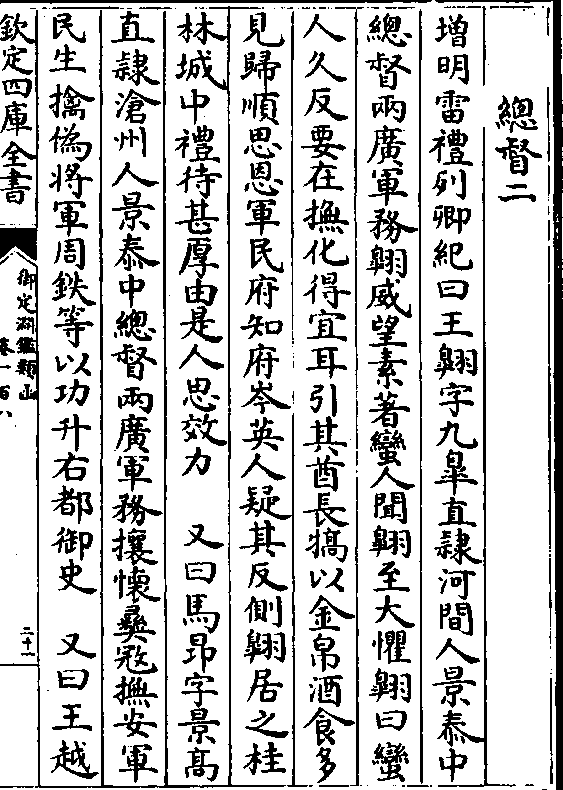 總督二
增明雷禮列卿紀曰王翺字九臯直隸河間人景泰中
總督兩廣軍務翺威望素著蠻人聞翺至大懼翺曰蠻
人久反要在撫化得宜耳引其酋長犒以金帛酒食多
見歸順思恩軍民府知府岑英人疑其反側翺居之桂
林城中禮待甚厚由是人思效力 又曰馬昂字景高
直隸滄州人景泰中總督兩廣軍務攘懷彝冦撫安軍
民生擒偽將軍周鉄等以功升右都御史 又曰王越
欽定四庫全書
御定淵鑑類函
卷一百八
二十一